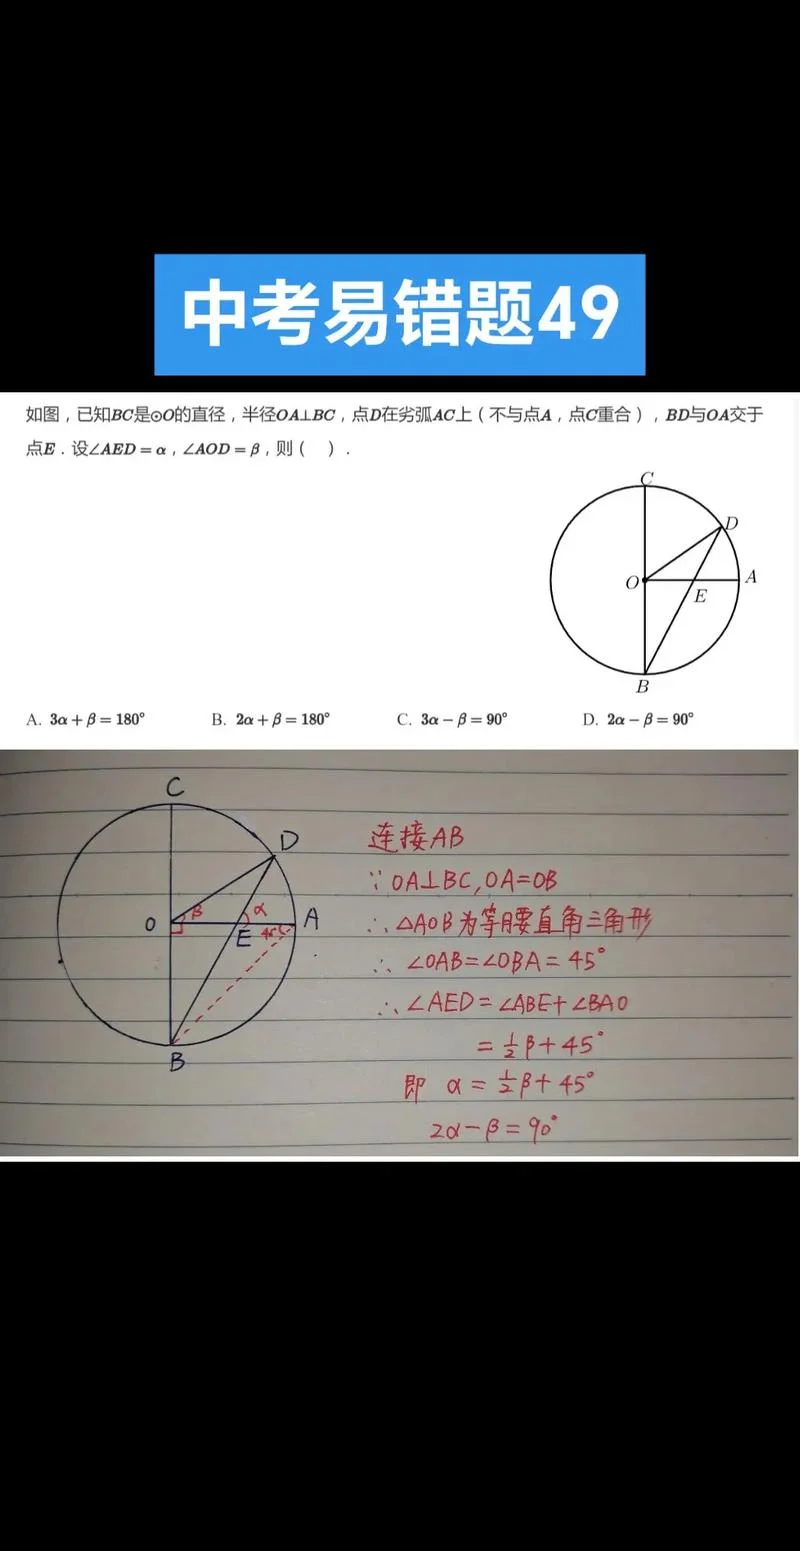 中考易错题49
如图，已知BC是⊙O的直径，半径OA⊥BC，点D在劣弧AC上（不与点A，点C重合），BD与OA交于
点E．设∠AED = α，∠AOD = β，则（　）．
C
D
O
E
A
B
A. 3α + β = 180°
B. 2α + β = 180°
C. 3α − β = 90°
D. 2α − β = 90°
C
D
O
β
α
E
45°
A
B
连接AB
∵OA⊥BC,OA=OB
∴△AOB为等腰直角三角形
∴∠OAB=∠OBA=45°
∴∠AED=∠ABE+∠BAO
=½β+45°
即 α=½β+45°
2α-β=90°